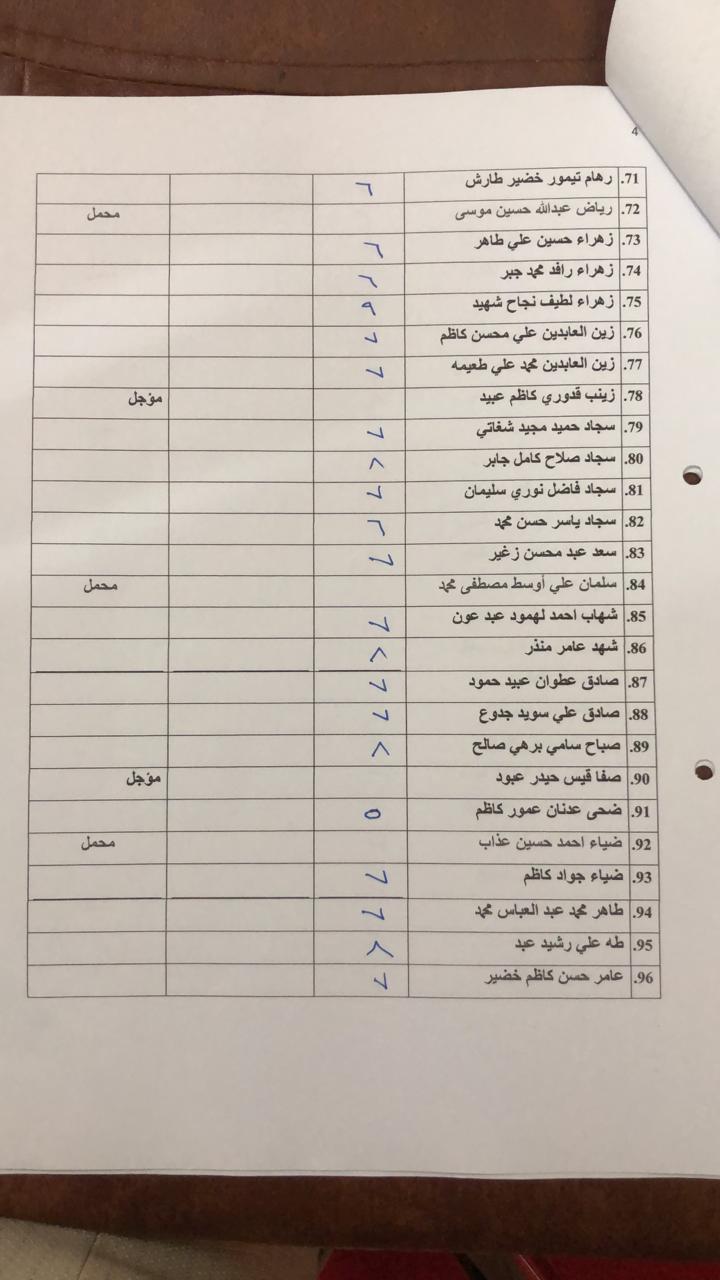 4
71. رهام تيمور خضير طارش ٦
72. رياض عبدالله حسين موسى محمل
73. زهراء حسين علي طاهر ٦
74. زهراء رافد محمد جبر ٦
75. زهراء لطيف نجاح شهيد ٩
76. زين العابدين علي محسن كاظم ٧
77. زين العابدين محمد علي طعيمه ٧
78. زينب قدوري كاظم عبيد مؤجل
79. سجاد حميد مجيد شغاتي ٧
80. سجاد صلاح كامل جابر ٨
81. سجاد فاضل نوري سليمان ٧
82. سجاد ياسر حسن محمد ٦
83. سعد عبد محسن زغير ٧
84. سلمان علي أوسط مصطفى محمد محمل
85. شهاب احمد لهمود عبد عون ٧
86. شهد عامر منذر ٨
87. صادق عطوان عبيد حمود ٧
88. صادق علي سويد جدوع ٧
89. صباح سامي برهي صالح ٨
90. صفا قيس حيدر عبود مؤجل
91. ضحى عدنان عمور كاظم ٥
92. ضياء احمد حسين عذاب محمل
93. ضياء جواد كاظم ٧
94. طاهر محمد عبد العباس محمد ٧
95. طه علي رشيد عبد ٨
96. عامر حسن كاظم خضير ٧